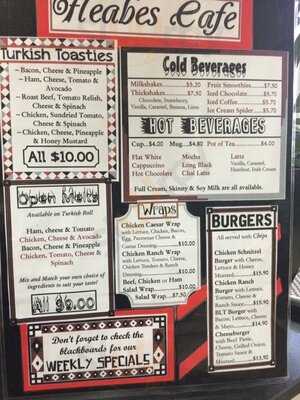 Heabes Cafe
Turkish Toasties
– Bacon, Cheese & Pineapple
– Ham, Cheese, Tomato &
Avocado
– Roast Beef, Tomato Relish,
Cheese & Spinach
– Chicken, Sundried Tomato,
Cheese & Spinach
– Chicken, Cheese, Pineapple
& Honey Mustard
All $10.00
Cold Beverages
Milkshakes $5.20 Fruit Smoothies $7.50
Thickshakes $7.50 Iced Chocolate $5.70
Chocolate, Strawberry, Iced Coffee $5.70
Vanilla, Caramel, Banana, Lime Ice Cream Spider $5.70
HOT BEVERAGES
Cup...$4.00 Mug...$4.80 Pot of Tea $4.00
Flat White Mocha Latte
Cappuccino Long Black Vanilla, Caramel,
Hot Chocolate Chai Latte Hazelnut, Irish Cream
Full Cream, Skinny & Soy Milk are all available.
Open Melts
Available on Turkish Roll
Ham, cheese & Tomato
Chicken, Cheese & Avocado
Bacon, Cheese & Pineapple
Chicken, Tomato, Cheese &
Spinach
Mix and Match your own choice of
ingredients to suit your taste!
All $9.00
Wraps
Chicken Caesar Wrap
with Lettuce, Chicken, Bacon,
Egg, Parmesan Cheese &
Caesar Dressing $10.00
Chicken Ranch Wrap
with Lettuce, Tomato, Cheese,
Chicken Tenders & Ranch
Dressing $10.00
Beef, Chicken or Ham
Salad Wrap $10.00
Salad Wrap $7.50
BURGERS
All served with Chips
Chicken Schnitzel
Burger with Cheese,
Lettuce & Honey
$15.90
Chicken Ranch
Burger with Lettuce,
Tomato, Cheese &
Ranch Sauce $15.90
BLT Burger with
Bacon, Lettuce, Cheese
& Mayo $14.90
Cheeseburger
with Beef Pattie,
Cheese, Grilled Onion,
Tomato Sauce &
Mustard $13.90
Don't forget to check the
blackboards for our
WEEKLY SPECIALS